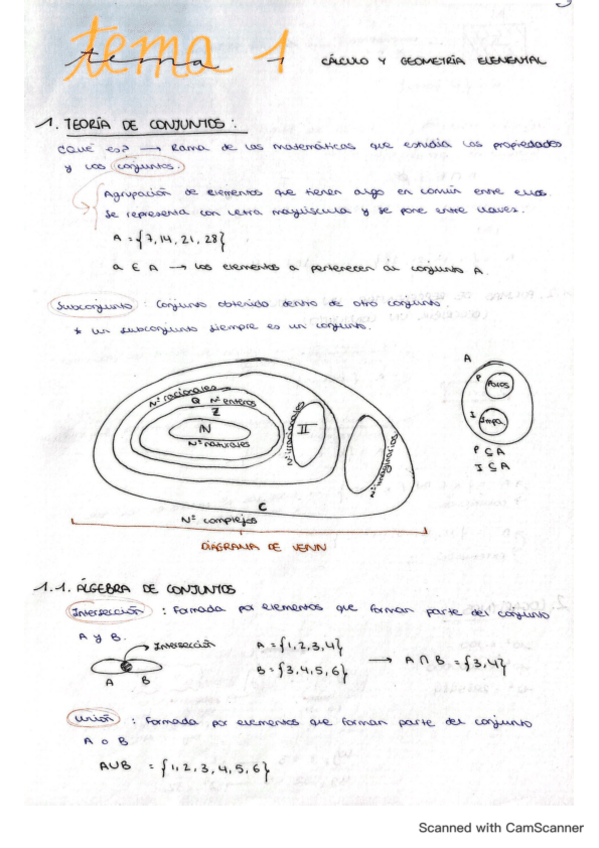 tema 1
tema 1 CÁLCULO Y GEOMETRÍA ELEMENTAL
1. TEORÍA DE CONJUNTOS:
¿Qué es? → Rama de las matemáticas que estudia las propiedades
y los conjuntos.
Agrupación de elementos que tienen algo en común entre ellos
Se representa con letra mayúscula y se pone entre llaves.
A = {7, 14, 21, 28}
a ∈ A → los elementos a pertenecen al conjunto A.
Subconjunto : Conjunto obtenido dentro de otro conjunto.
* un subconjunto siempre es un conjunto.
Nº racionales
Q Nº enteros
Z
N
Nº naturales
Nº irracionales
II
Nº imaginarios
C
Nº complejos
DIAGRAMA DE VENN
A
P Pares
I Impa.
P ⊆ A
I ⊆ A
1.1. ÁLGEBRA DE CONJUNTOS
Intersección : Formada por elementos que forman parte del conjunto
A y B.
Intersección
A B
A = {1, 2, 3, 4}
B = {3, 4, 5, 6} → A ∩ B = {3, 4}
Unión : Formada por elementos que forman parte del conjunto
A o B
A∪B = {1, 2, 3, 4, 5, 6}
Scanned with CamScanner